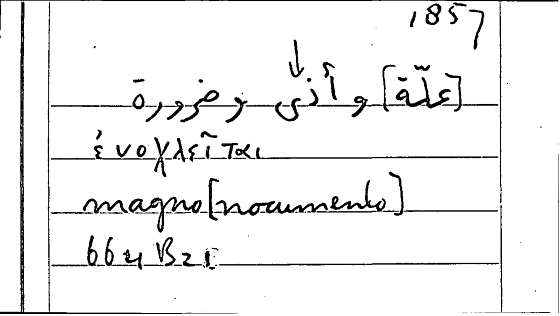 1857
↓
[علّة] و أذى و ضرورة
ἐνοχλεῖται
magno [nocumento]
664 B21